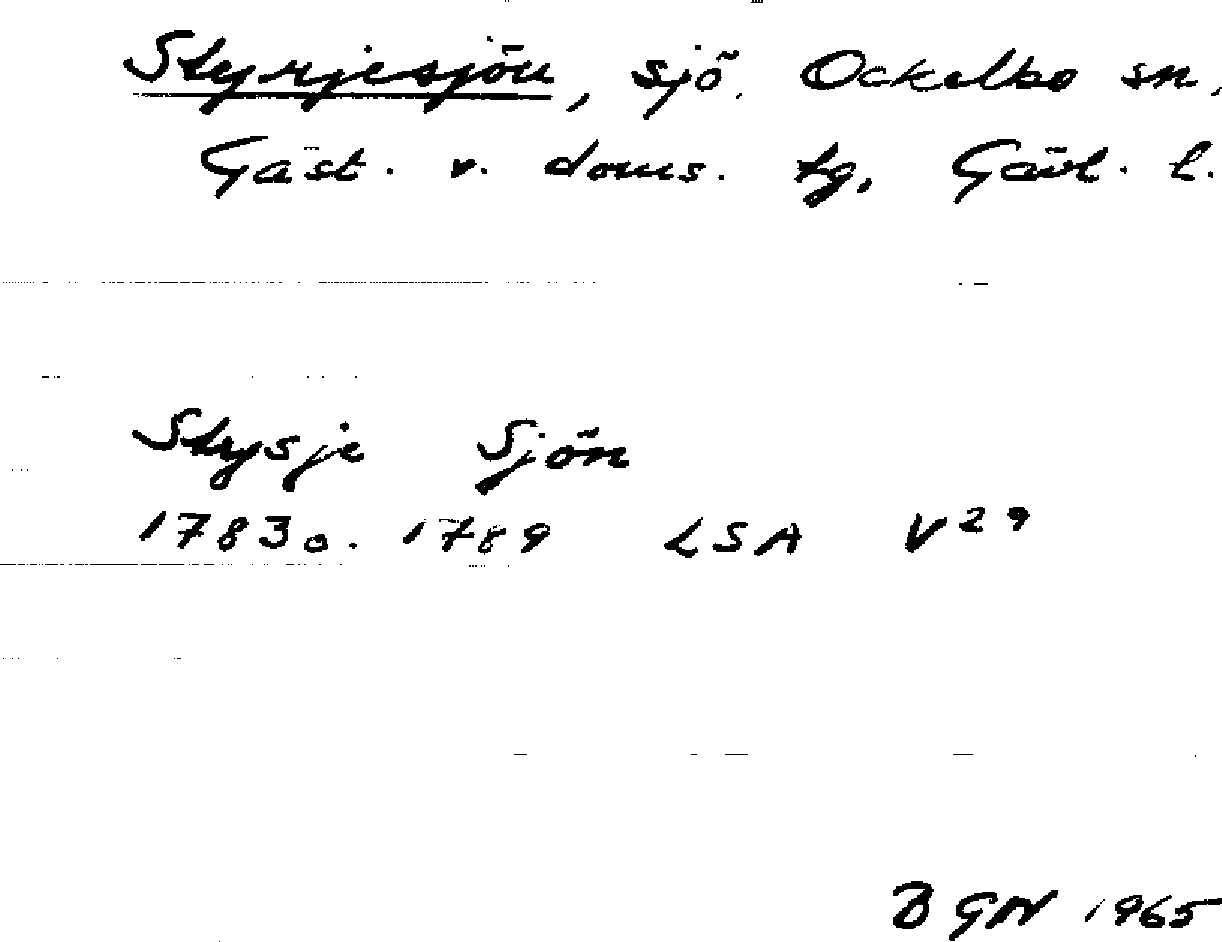 Styrjesjön, sjö. Ockelbo sn,
Gäst. v. doms. tg, Gävl. l.
Stysje Sjön
1783 o. 1789 LSA V29
B GN 1965